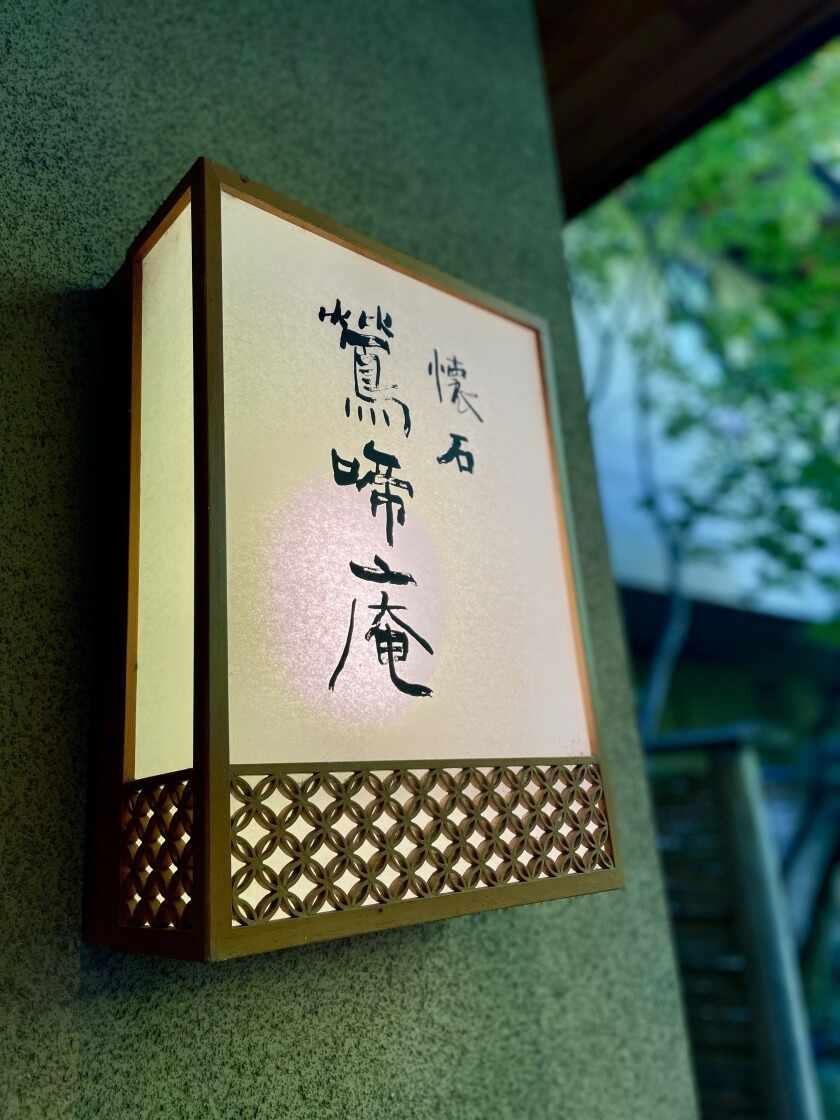 懐石
鶯啼庵